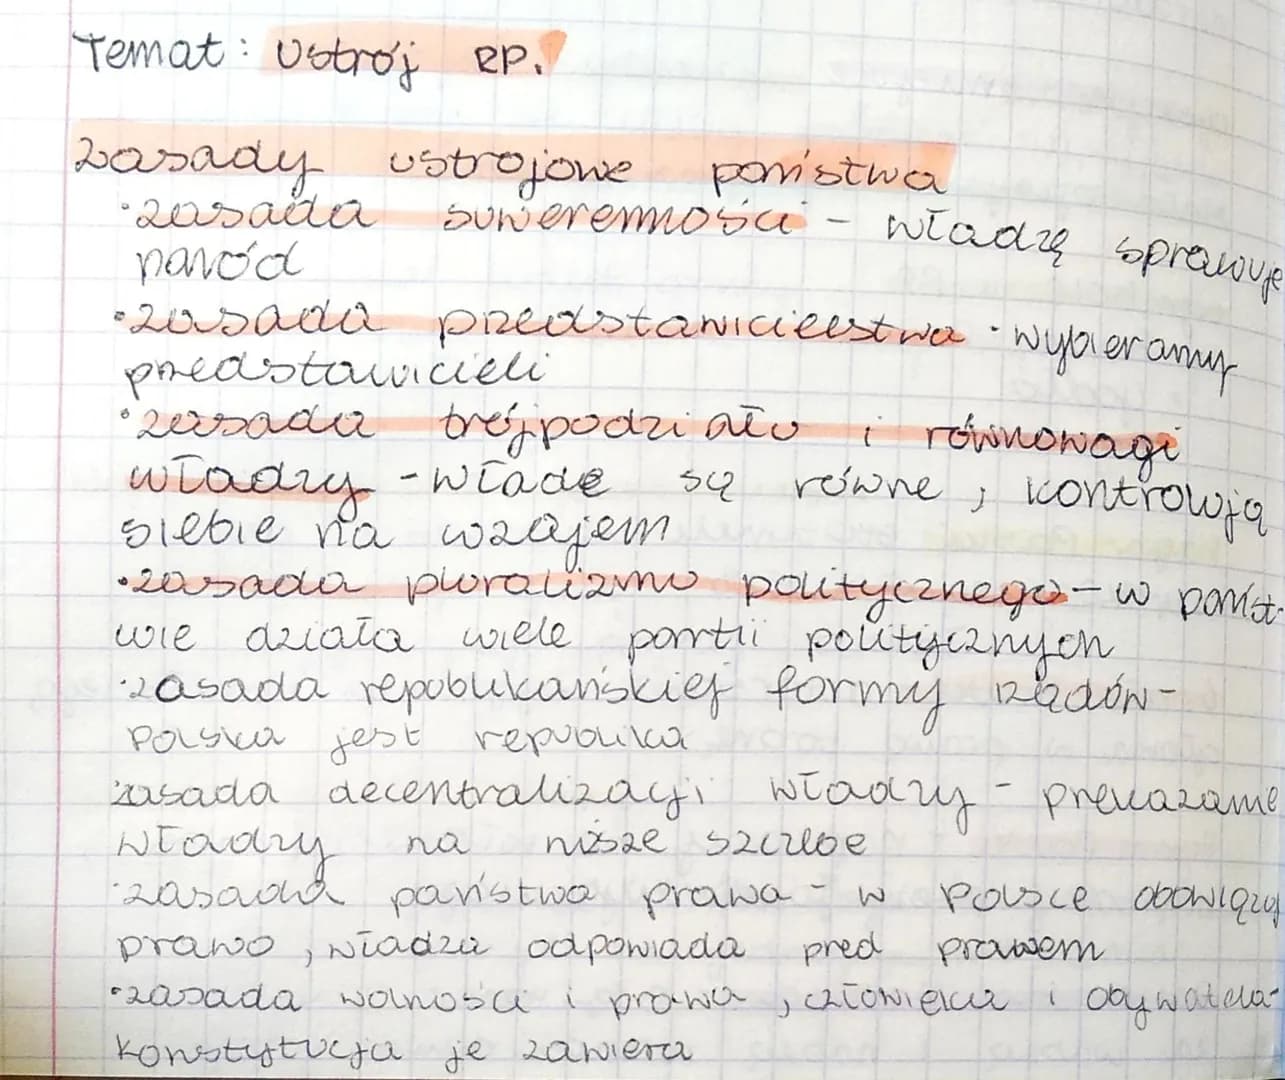 Temat: Ustrój RP.
Zasady ustrojowe państwa
• zasada suwerenności - władzę sprawuje
naród
• zasada przedstawicielstwa - wybieramy
przedstawicieli
• zasada trójpodziału i równowagi
władzy - władze są równe, kontrolują
siebie na wzajem
• zasada pluralizmu politycznego - w państ-
wie działa wiele partii politycznych
• zasada republikańskiej formy rządów -
Polska jest republika
zasada decentralizacji władzy - przekazanie
władzy na niższe szczeble
• zasada państwa prawa - w Polsce obowiązuj
prawo, władza odpowiada pred prawem
• zasada wolności i prawa, człowieka i obywatela -
Konstytucja je zawiera